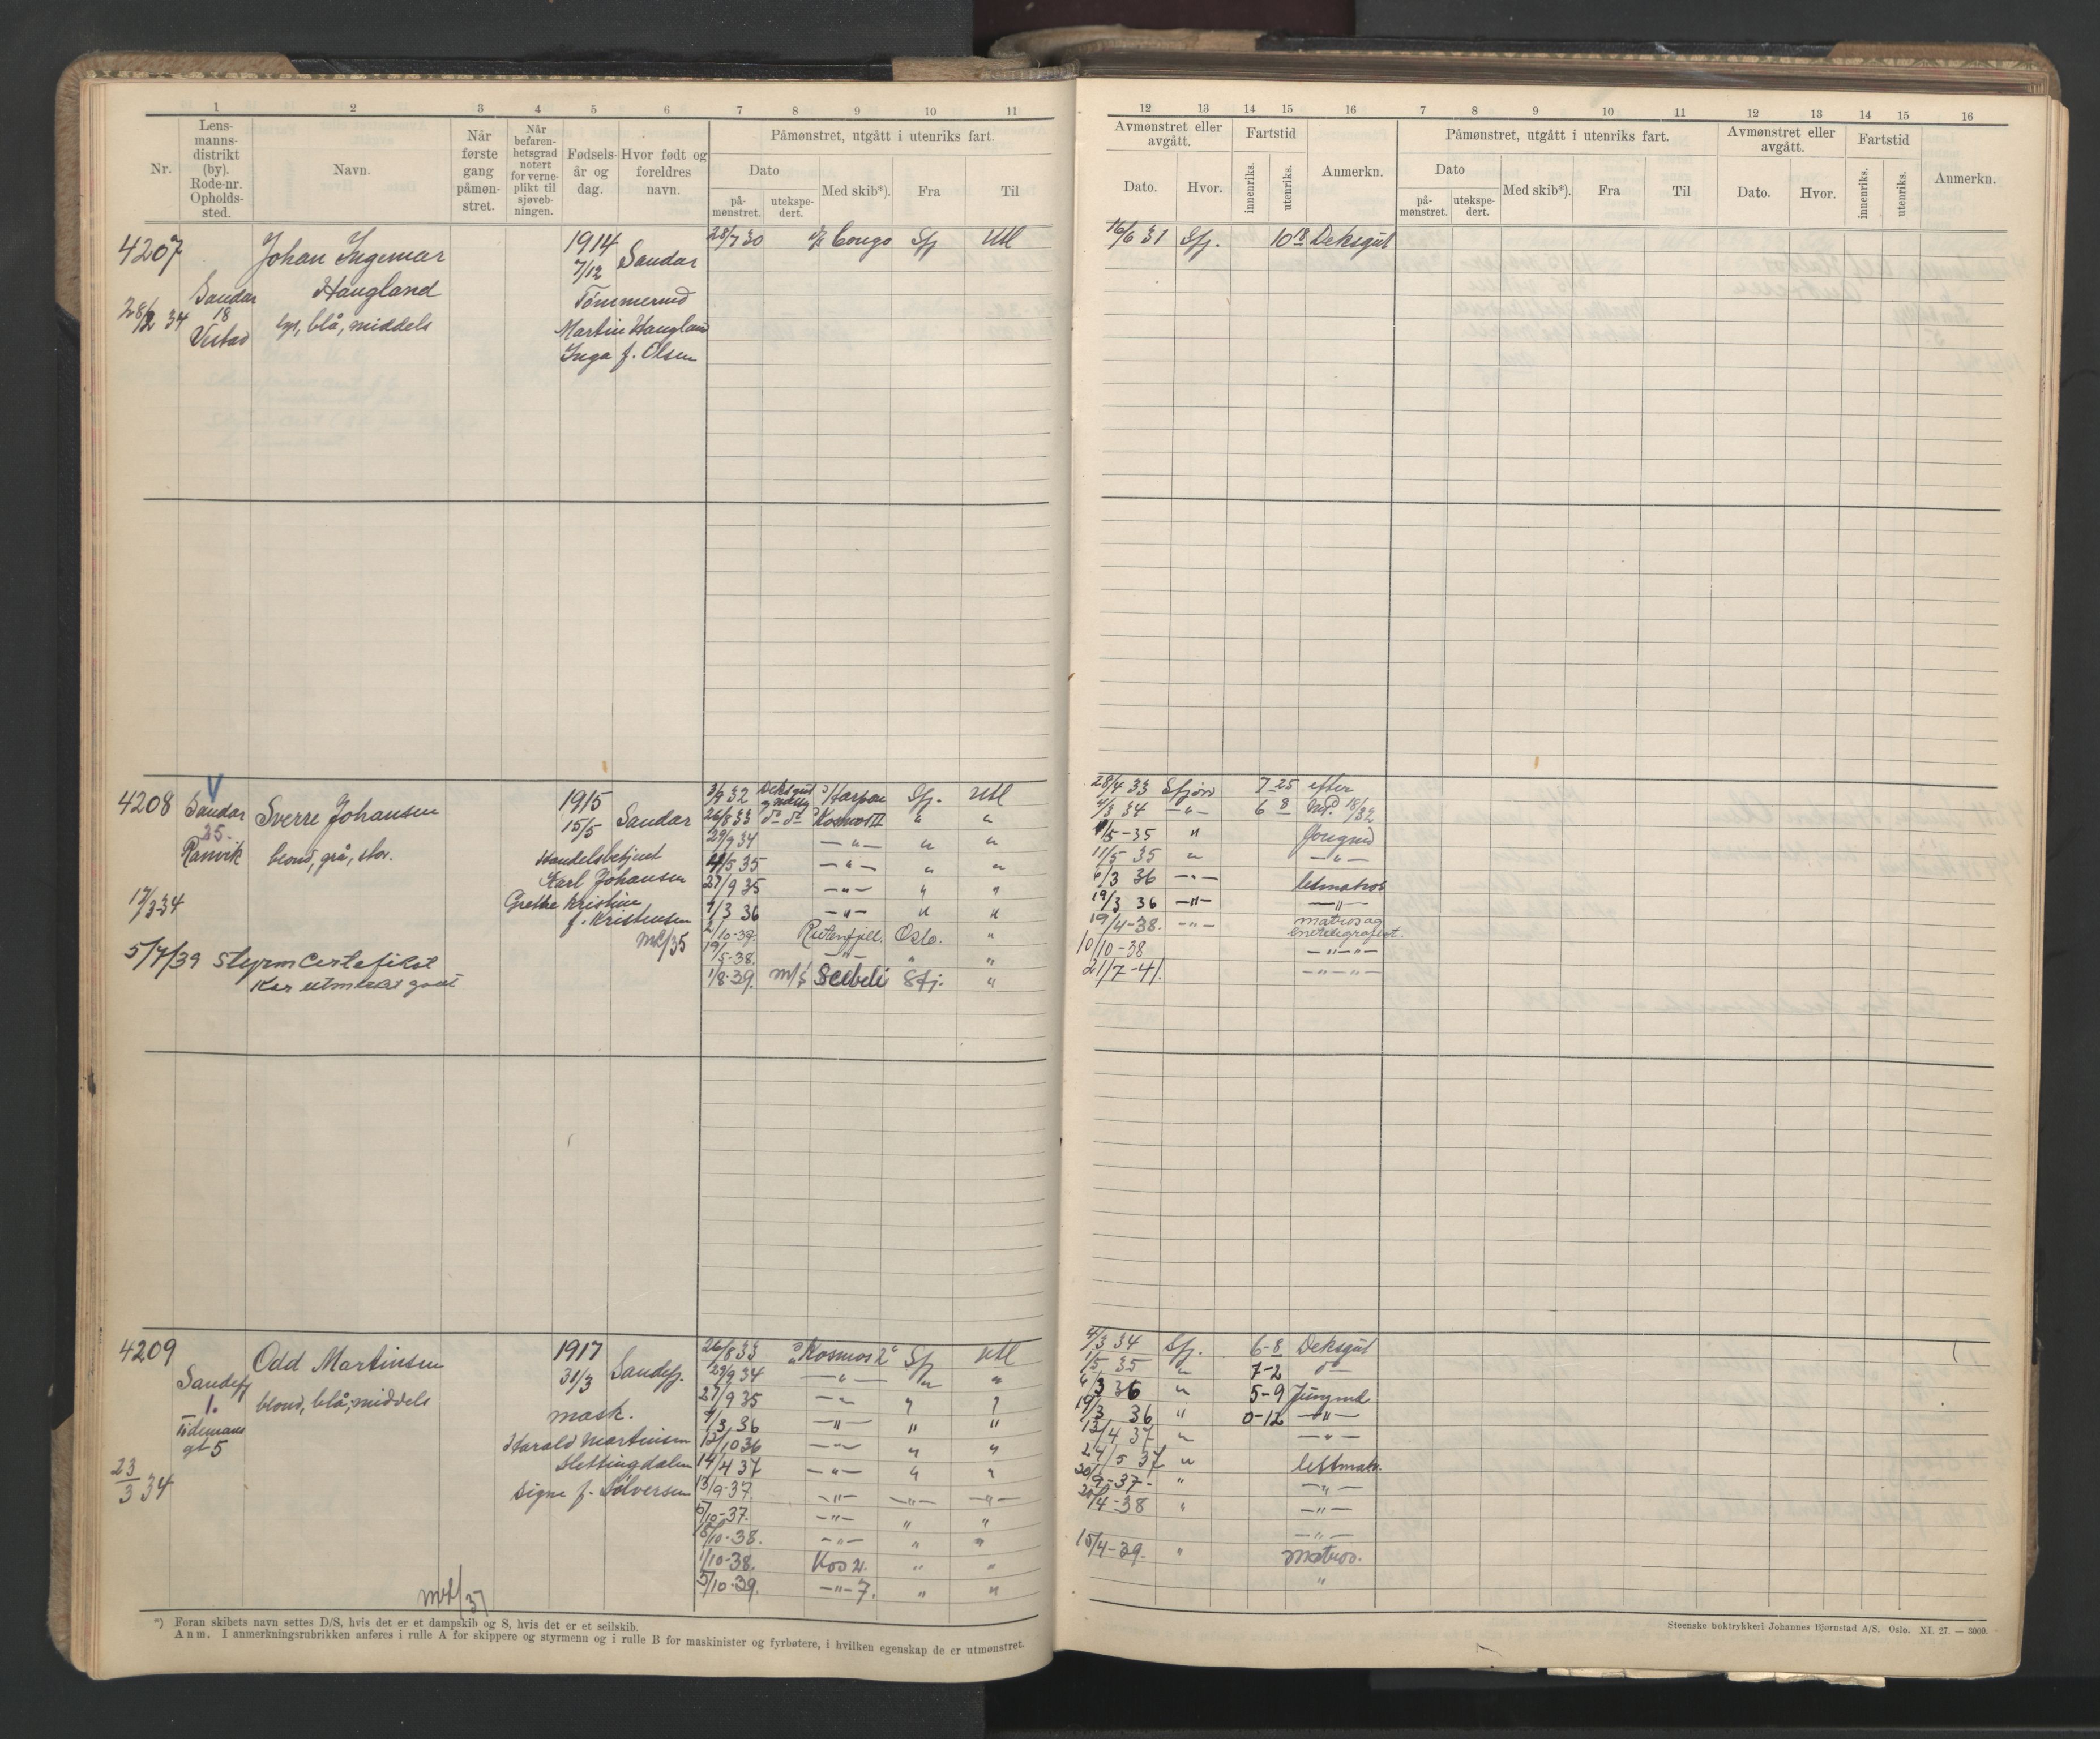 1 2 3 4 5 6 7 8 9 10 11
Nr. Lens-manns-distrikt (by). Rode-nr. Opholds-sted. Navn. Når første gang påmøn-stret. Når befaren-hetsgrad notert for verne-plikt til sjøveb-ningen. Fødsels-år og dag. Hvor født og foreldres navn. Påmønstret, utgått i utenriks fart.
Dato på-mønstret. utekspe-dert. Med skib*). Fra Til
4207 Johan Ingemar 1914 Sandar 28/7 30 Congo Sfj Utl
Sandar Haugland 7/12
28/2 34 18 lys, blå, middels Tömmerud
Martin Haugland
Inga f. Olsen
4208 Sandar Sverre Johansen 1915 32 Harpon Sfj. Utl
25. 15/5 Sandar 26/8 33 Kosmos II " "
Ranvik blond, grå, stor. 29/9 34 —"— " "
Handelsbetjent 5 35 —"— " "
Karl Johansen 27/9 35 —"— " "
17/3-34 Grethe Kristine /3 36 —"— " "
f. Kristensen /10-37. Oslo. "
5/7/39 Styrm Certefikat 5-38. —"— " "
1/8-39. m/s Sfj. "
4209 Odd Martinsen 1917 26/8 33 "Kosmos 2" Sfj Utl
Sandefj 31/3 Sandefj. 29/9 34 —"— " "
1. blond, blå, middels 27/9 35 —"— " "
Tidemans mask. /3 36 —"— " "
gt 5 Harald Martinsen 12/10 36 —"— " "
23/3 34 14/4 37 —"— " "
Signe f. Sølversen 13/9-37 —"— —"— —"—
5/10-37. —"— " "
18/10-38. —"— " "
1/10-38. Kos " "
5/10-39. —"— 7. " "
*) Foran skibets navn settes D/S, hvis det er et dampskib og S, hvis det er et seilskib.
Anm. I anmerkningsrubrikken anføres i rulle A for skippere og styrmenn og i rulle B for maskinister og fyrbøtere, i hvilken egenskap de er utmønstret.
12 13 14 15 16 7 8 9 10 11 12 13 14 15 16
Avmønstret eller avgått. Fartstid Anmerkn. Påmønstret, utgått i utenriks fart. Avmønstret eller avgått. Fartstid Anmerkn.
Dato. Hvor. innenriks. utenriks. Dato på-mønstret. utekspe-dert. Med skib*). Fra Til Dato. Hvor. innenriks. utenriks.
16/6 31 Sfj. 10 18 Deksgut
28/4 33 Sfjord 7 25 efter
4/3 34 —"— 6 8 18/32
1/5-35 " Jungmd
11/5 35 " —"—
6/3 36 —"— letmatros
19/3 36 —"— —"—
19/4-38. —"— matros og
10/10-38 —"—"—
21/7-41. —"—"—
4/3 34 Sfj. 6-8 Deksgut
1/5 35 " 7-2 do
6/3 36 " 5-9 Jungmd
19/3 36 " 0-12 —"—
12/4 37 " —"—
24/5 37 " lettmatr.
30/9-37- " —"—
/4-38 " —"—
—"—
15/4-39. " matros.
"
Steenske boktrykkeri Johannes Bjørnstad A/S. Oslo. XI. 27. — 3000.